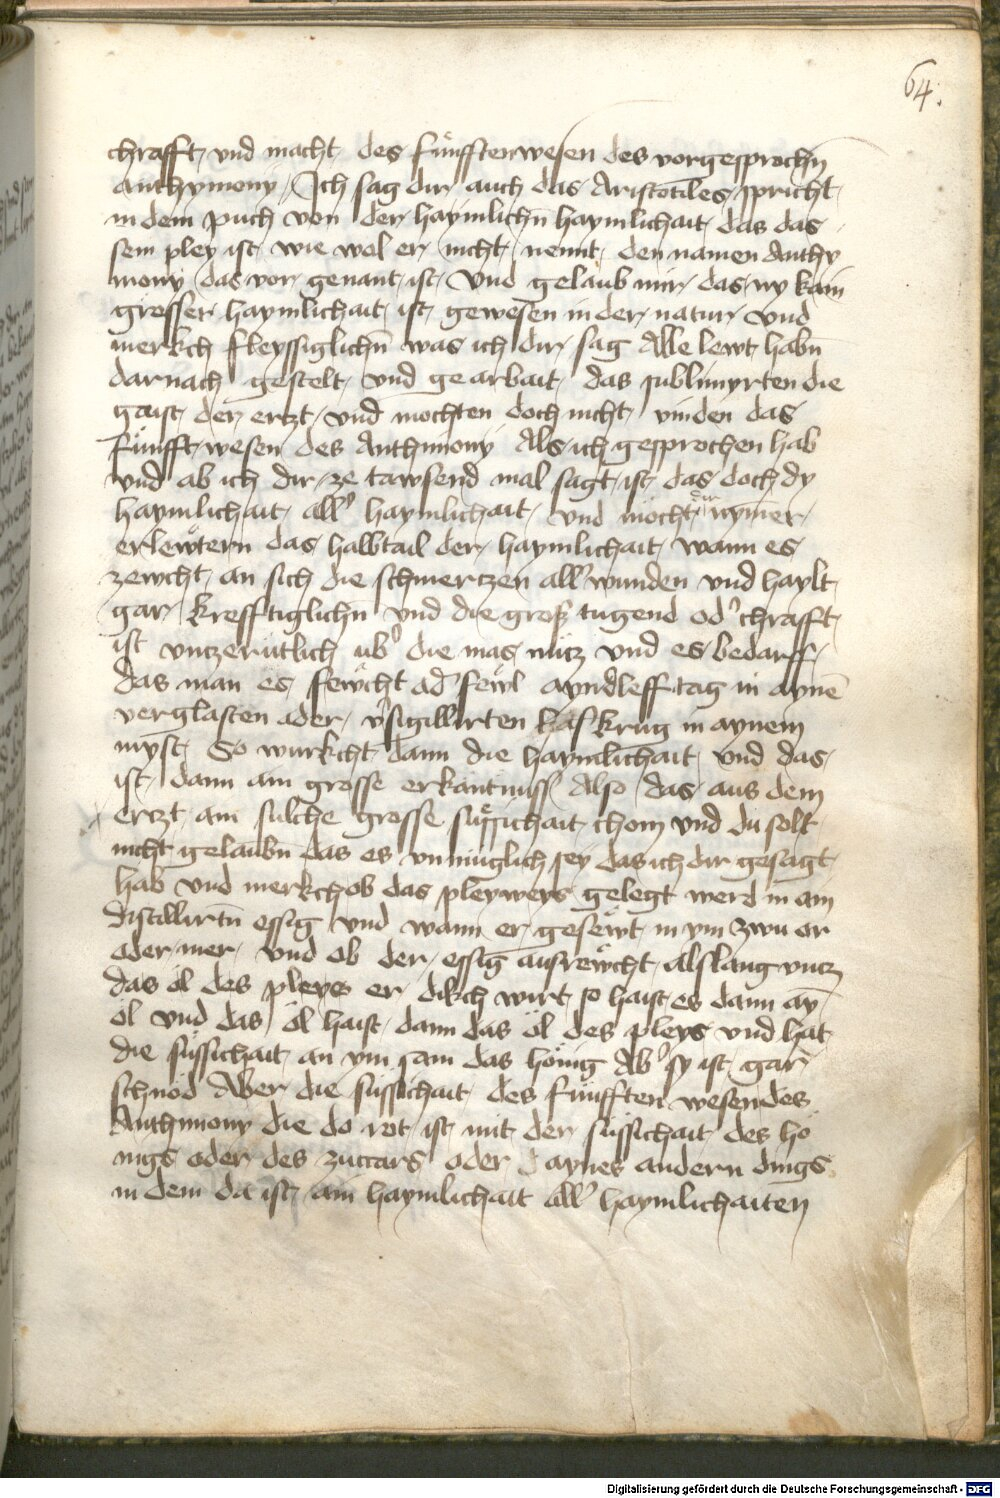 64.
chrafft vnd macht des fünfftenwesen des vorgesprochn̄
Anthymony / Ich sag dir auch das Aristotiles spricht
in dem puch von der haymlichn̄ haymlichait das das
sein pley ist wie wol er nicht nennt den namen Anthy
mony das vor genant ist Vnd gelaub mir das ny kain
grosser haymlichait ist gewesen in der natur Vnd
merkch fleyssiglichn̄ was ich dir sag Alle lewt habn̄
darnach gestelt vnd gearbait das sublimyrten die
gaist der erzt vnd mochten doch nicht vinden das
fünfft wesen des Anthimony Als ich gesprochen hab
vnd ab ich dir ze tawsend mal sagt ist das doch dy
haymlichait all' haymlichait vnd möcht dir nymer
erlewtern das halbtail der haymlichait wann es
zewcht an sich die schmertzen all' wunden vnd haylt
gar krefftiglichn̄ vnd die gros tugend od' chrafft
ist vnczerütlich üb' die mas nücz vnd es bedarff
das man es fewcht ad' fewl ayndleff tag in aynē
verglasten ader v'sigillirten haf krug in aynem
myst So würkcht dann die haymlichait vnd das
ist dann ain grosse erkantnuss Also das aus dem
erczt ain sülche grosse süssichait chom vnd du solt
nicht gelaubn̄ das es vnmüglich sey das ich dir gesagt
hab vnd merkch ob das pleyweys gelegt werd in ain
distillirtn̄ essig vnd wann er gesewt in ym zwu or
oder mer vnd ob der essig ausrewcht als lang vncz
das öl des pleys er dikch wirt so haist es dann ay̅
öl vnd das öl haist dann das öl des pleys vnd hat
die süssichait an ym sam das hönig Ab' sy ist gar
schnöd Aber die süssichait des fünfften wesen des
Anthimony die do rot ist mit der süssichait des hö
nigs oder des zuccars oder aynes andern dings
in dem da ist ain haymlichait all' haymlichaiten
Digitalisierung gefördert durch die Deutsche Forschungsgemeinschaft - DFG